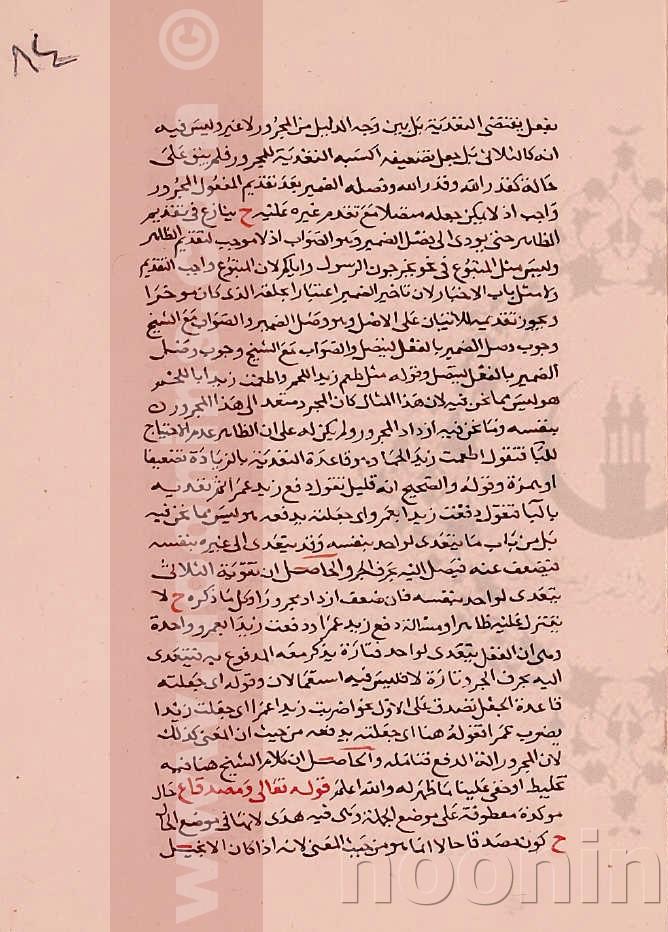 ٨٤
بفعل يقتضى التعدية بل بين وجه الدليل من المجرور لا غير وليس فيه
انه كالثلاثى بل جعل تضعيفه اكسبه التعدية للمجرور فلم يبق على
حالة كقدر الله وقدر الله وفصله الضمير بعد تقديم المفعول المجرور
واجب اذ لا يمكن جعله متصلا مع تقدم غيره عليه ح ينازع فى تقديم
الظاهر حتى يودى الى فصل الضمير وهو الصواب اذ لا موجب لتقديم الظاهر
وليس مثل المتبوع فى نحو يخرجون الرسول واياكم لان المتبوع واجب التقديم
ولا مثل باب الاختيار لان تاخير الضمير اعتبارا بجلقه الذى كان موخرا
ويجوز تقديمه للاتيان على الاصل وهو وصل الضمير والصواب مع الشيخ
وجوب وصل الضمير بالفعل ليتصل والصواب مع الشيخ وجوب وصل
الضمير بالفعل ليتصل وقوله مثل طعم زيد اللحم واطعمت زيدا باللحم
هو ليس مما نحن فيه لان هذا المثال كان المجرد متعد الى هذا المجرور
بنفسه وما نحن فيه ازداد المجرور ولم يكن له على ان الظاهر عدم الاحتياج
للبا فتقول اطعمت زيدا وهو قاعدة التعدية بالزيادة تضعيفا
او بهمزة وقوله والصحيح انه قليل تقول دفع زيد عمرا ثم تعديه
بالبا فتقول دفعت زيدا بعمرو اى جعلته يدفعه هو ليس مما نحن فيه
بل من باب ما يتعدى لواحد بنفسه وقد يتعدى الى غيره بنفسه
فيضعف عنه فيصل اليه بحرف الجر والحاصل ان تقوية الثلاثى
يتعدى لواحد بنفسه فان ضعف ازداد مجرورا وكل ما ذكره ح لا
يعترك عليه ظاهرا ومسالة دفع زيد عمرا ودفعت زيدا بعمرو واحدة
وهى ان الفعل يتعدى لواحد فتارة يذكر معه المدفوع به فيتعدى
اليه بحرف الجر وتارة لا فليس فيه استعمالان وقوله اى جعلته
قاعدة الجعل تصدق على الاول نحو اضربت زيدا عمرا اى جعلت زيدا
يضرب عمرا فقوله هنا اى جعلته يدفعه من حيث ان المعنى كذلك
لان المجرور الة الدفع فتامله والحاصل ان كلام الشيخ هنا فيه
تخليط او خفى علينا ما ظهر له والله اعلم قوله تعالى ومصدقا ع حال
موكدة معطوفة على موضع الجملة وهى فيه هدى لانها فى موضع الحال
ح كون مصدقا حالا انما هو من حيث المعنى لانه اذا كان الانجيل
©
www.
noonin